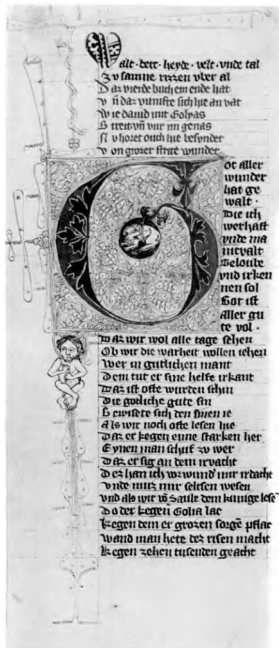 alt · velt · heyde · velt · vnde tal
Zv samne rizen vber al
Daz vierde buch ein ende hat
vñ daz vumfte sich hie an vat
Wie dauid mit Golyas
Streit vñ vur im genas
Nv horet ouch hie besvnder
von grozer strite wunder
Got aller
wunder
hat ge
walt ·
Die ich
werhaft
vnde ma
nicvalt
Geloube
vnd irken
nen sol
Got ist
aller gu
te vol ·
Daz wir wol alle tage sehen
Ob wir die warheit wollen iehen
Wer in gutlichen mant
Dem tut er sine helfe irkant
Daz ist ofte wurden schin
Die gotliche gute sin
Bewisete sich den sinen ie
Als wir noch ofte lesen hie
Daz er kegen eime starken her
Eynen man schuf zv wer
Daz er sig an dem irvacht
Der han ich vor wund mir irdacht
vnde muz mir seltsen wesen
vnd als wir vō Saule dem kunige lesē
Do der kegen Golia lac
Kegen dem er grozen sorgē pflac
Wand man hete des risen macht
Kegen zehen tusenden geacht